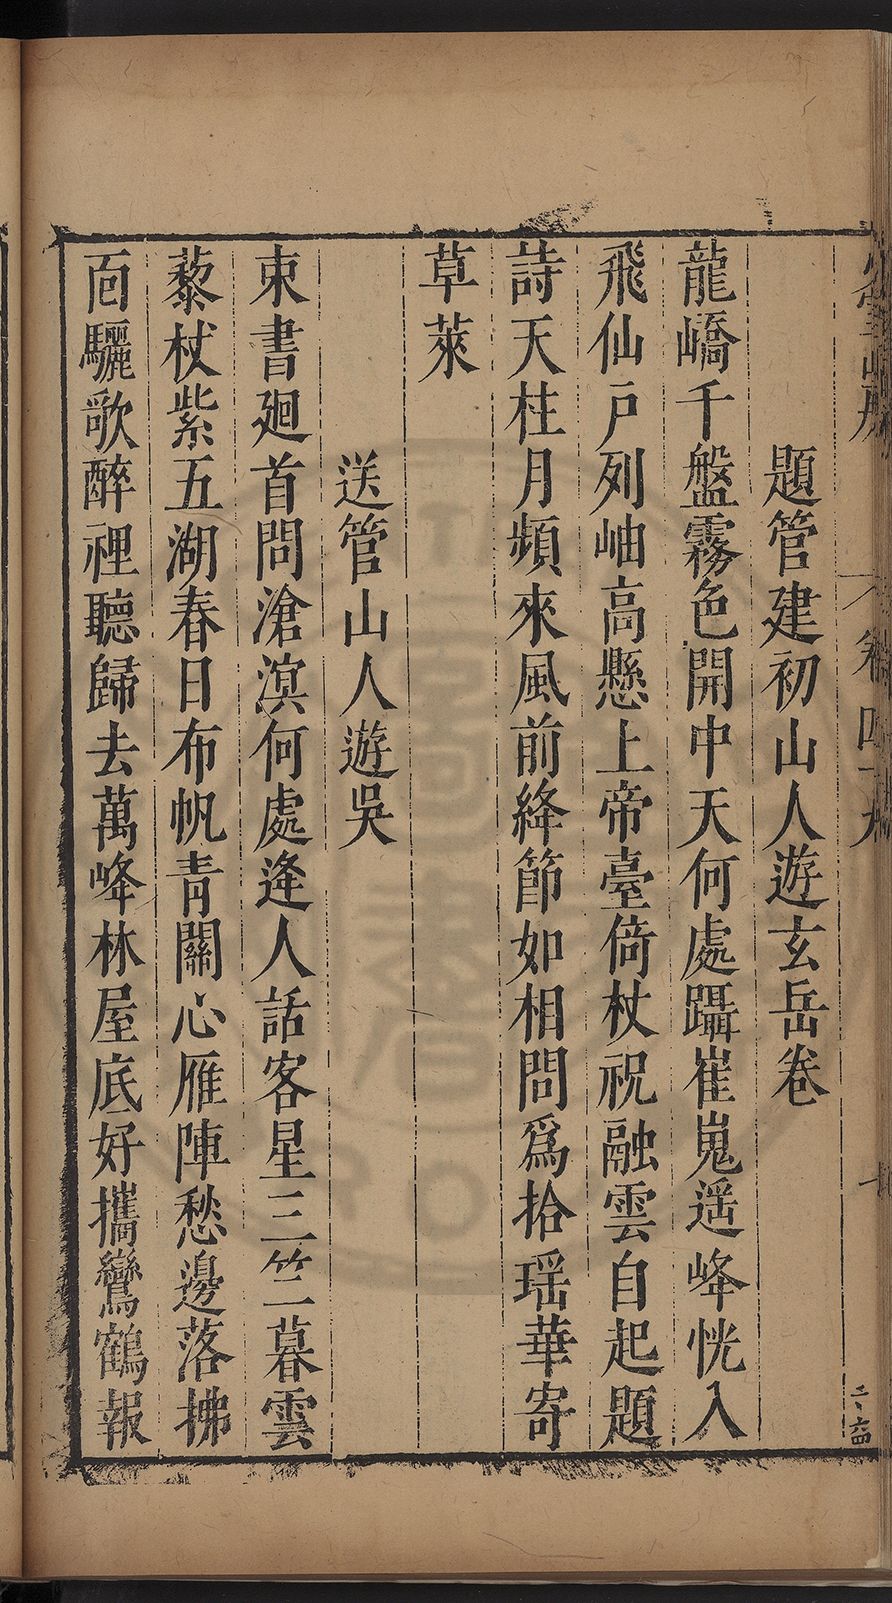 題管建初山人遊玄岳卷
龍嶠千盤霧色開中天何處躡崔嵬遥峰恍入
飛仙戸列岫高懸上帝臺倚杖祝融雲自起題
詩天柱月頻來風前絳節如相問爲拾瑶華寄
草萊
送管山人遊吳
束書廻首問滄溟何處逢人話客星三竺暮雲
藜杖紫五湖春日布帆青關心雁陣愁邊落拂
面驪歌醉裡聽歸去萬峰林屋底好攜鸞鶴報